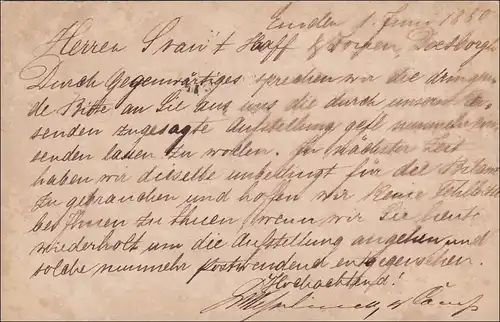 Emden 1. Juni 1880
Herren & Zonen, Doesborgh
Durch Gegenwärtiges sprechen wir die dringen-
de Bitte an Sie aus uns die durch unseren Rei-
senden zugesagte Aufstellung gefl. nunmehr
senden lassen zu wollen. In nächster Zeit
haben wir dieselbe unbedingt für die Bilanz
zu gebrauchen und hoffen wir keine Fehlbitte
bei Ihnen zu thuen wenn wir Sie heute
wiederholt um die Aufstellung angehen und
solche nunmehr postwendend entgegensehen.
Hochachtend!